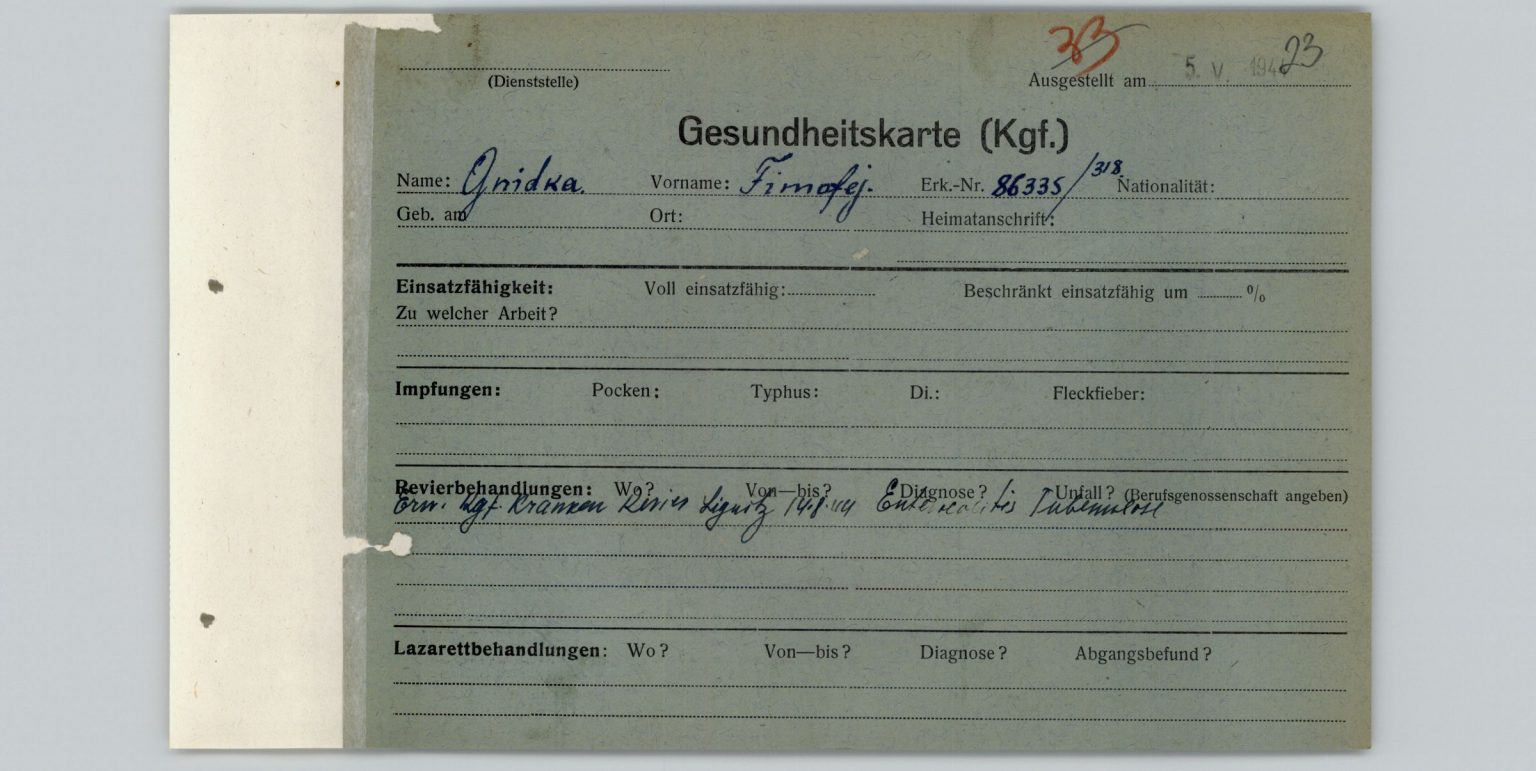 (Dienststelle)
33
23
Ausgestellt am 5. V. 194
Gesundheitskarte (Kgf.)
Name: Gnidka. Vorname: Timofej. Erk.-Nr. 86335/318 Nationalität:
Geb. am Ort: Heimatanschrift:
Einsatzfähigkeit: Voll einsatzfähig: Beschränkt einsatzfähig um %
Zu welcher Arbeit?
Impfungen: Pocken: Typhus: Di.: Fleckfieber:
Revierbehandlungen: Wo? Von—bis? Diagnose? Unfall? (Berufsgenossenschaft angeben)
Erw. Kgf. Kranken Revier Lignitz 14.8.44 Enterocolitis Tuberculose
Lazarettbehandlungen: Wo? Von—bis? Diagnose? Abgangsbefund?